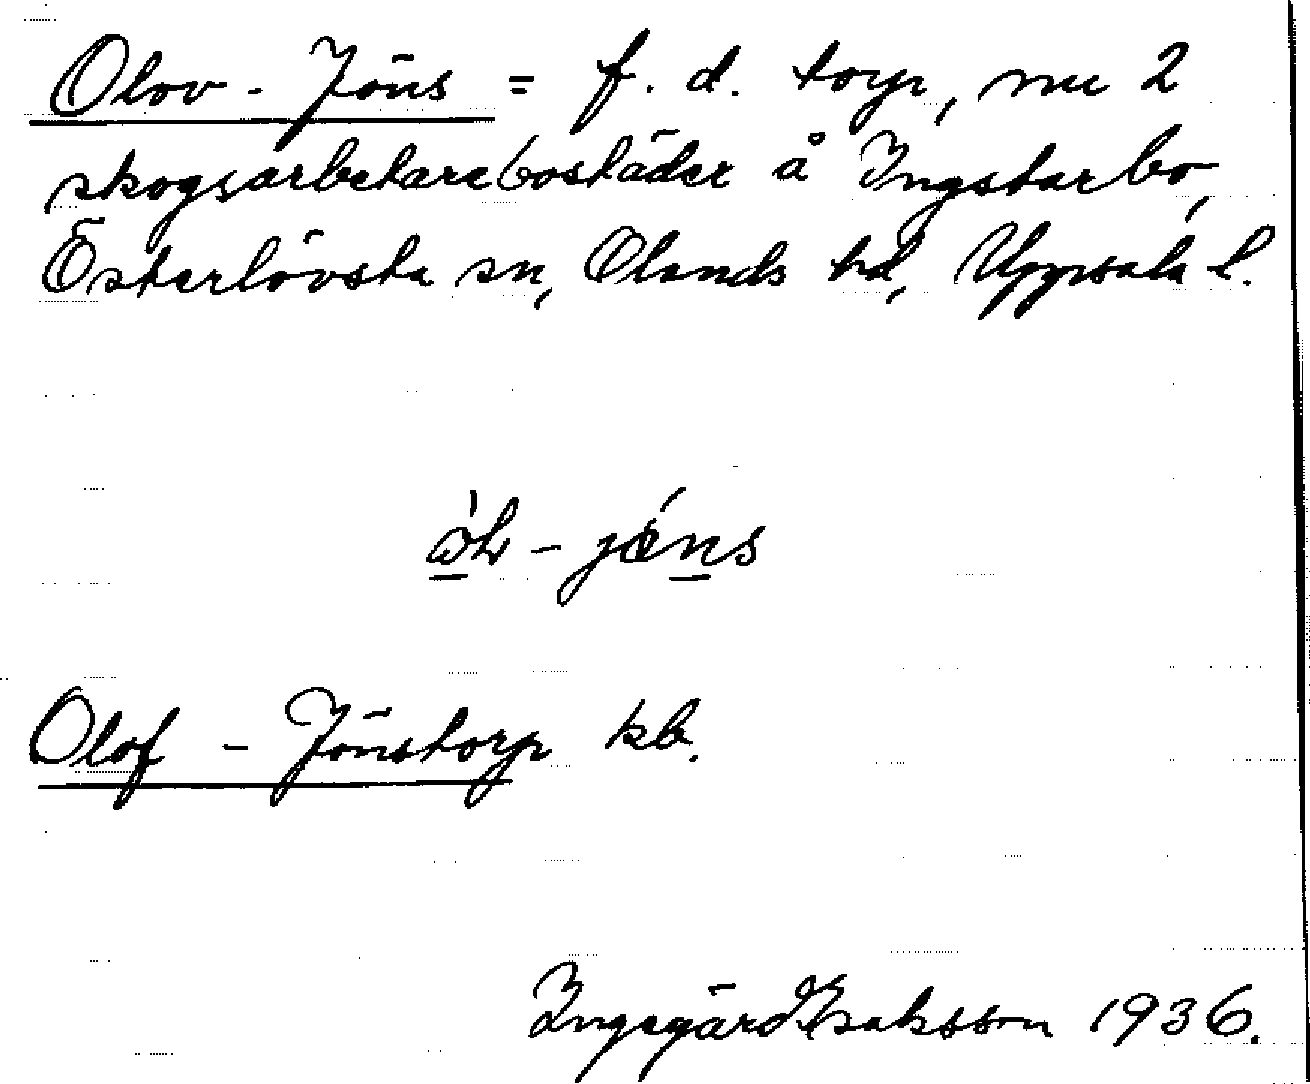 Olov - Jöns = f. d. torp, nu 2
skogsarbetarebostäder å Ingstarbo,
Österlövsta sn, Olands hd, Uppsala l.
Olof - Jönstorp kb.
Ingegärd Isaksson 1936.